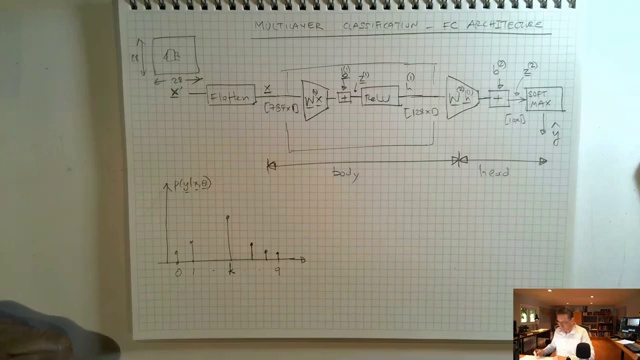 MULTILAYER CLASSIFICATION - FC ARCHITECTURE
28
28
X
Flatten
x
[784x1]
W⁽¹⁾x
+
b⁽¹⁾
z⁽¹⁾
ReLU
[128x1]
W⁽²⁾h⁽¹⁾
+
b⁽²⁾
z⁽²⁾
SOFT
MAX
ŷ
body
head
p(y|x,θ)
0 1 k 9